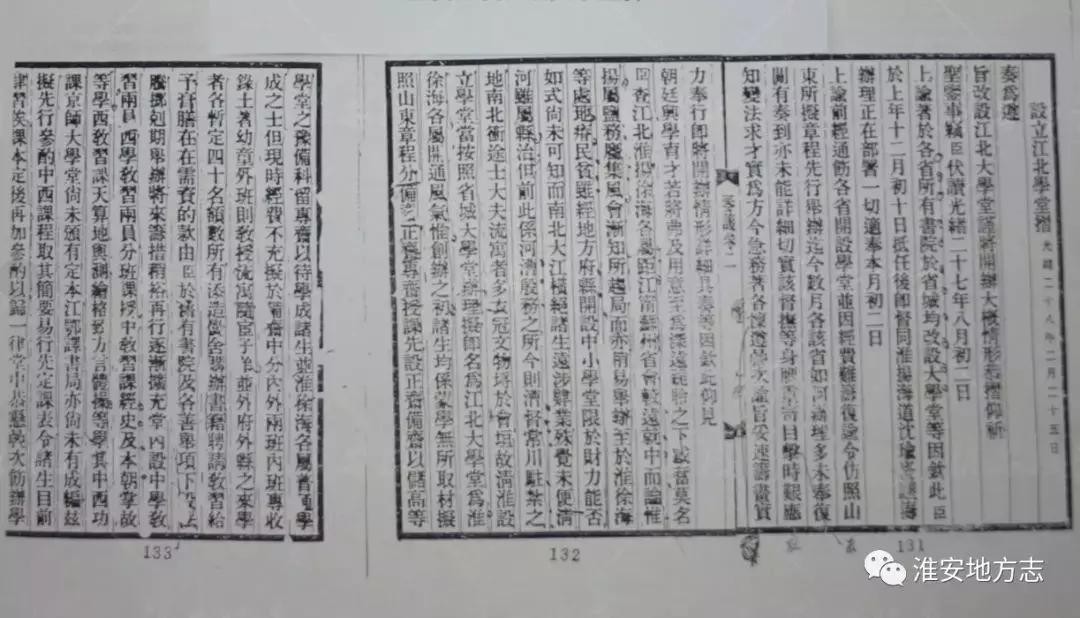 設立江北學堂摺 光緒二十八年二月二十五日
奏爲遵
旨改設江北大學堂謹將開辦大概情形恭摺仰祈
聖鑒事竊臣伏讀光緒二十七年八月初二日
上諭著於各省所有書院於省城均改設大學堂等因欽此臣
於上年十二月初十日抵任後即督同淮揚海道沈瑜慶議籌
辦理正在部署一切適奉本月初二日
上諭前經通飭各省開設學堂並因經費難籌復諭令仿照山
東所擬章程先行舉辦迄今數月各該省如何辦理多未奉復
間有奏到亦未能詳細切實該督撫等身膺目擊時艱應
知變法求才實爲方今急務著各懍遵疊次諭旨妥速籌畫實
力奉行即將開辦情形詳細具奏等因欽此仰見
朝廷興學育才若將弗及用意至爲深遠跪聆之下感奮莫名
臣查江北淮揚徐海各屬距江甯蘇州省會較遠就中而論惟
揚屬鹽務麕集風會漸知所趨局面亦稍易舉辦至於淮徐海
等處地瘠民貧雖經地方府縣開設中小學堂限於財力能否
如式尚未可知而南北大江橫經諸生遠涉肄業殊覺未便清
河雖屬縣治但前此係河漕殷務之所今則漕督常川駐紮之
地南北衝途士大夫流寓者多衣冠文物埒於會垣故清淮設
立學堂當按照省城大學堂辦理擬即名爲江北大學堂爲淮
徐海各屬開通風氣惟創辦之初諸生均係蒙學無所取材擬
照山東章程分備正專齋授課先設正齋備齋以儲高等
學堂之豫備科留專齋以待學成諸生並淮徐海各屬普通學
成之士但現時經費不充擬於備齋中分內外兩班內班專收
錄土著幼童外班則教授流寓隨宦子弟並外府外縣之來學
者各暫定四十名額數所有添造黌舍購辦書籍聘請教習給
予膏膳在在需資的款由臣於舊有書院及各善舉項下設法
騰挪剋期舉辦將來籌措稍裕再行逐漸擴充堂內設中學教
習兩員西學教習兩員分班課授中教習課經史及本朝掌故
等學西教習課天算地輿測繪格致方言體操等學其中西功
課京師大學堂尚未頒有定本江鄂譯書局亦尚未有成編茲
擬先行參酌中西課程取其簡要易行先定課表令諸生目前
肄習俟課本定後再加參酌以歸一律堂中恭懸疊次飭辦學
奏議卷二
131
132
133
淮安地方志